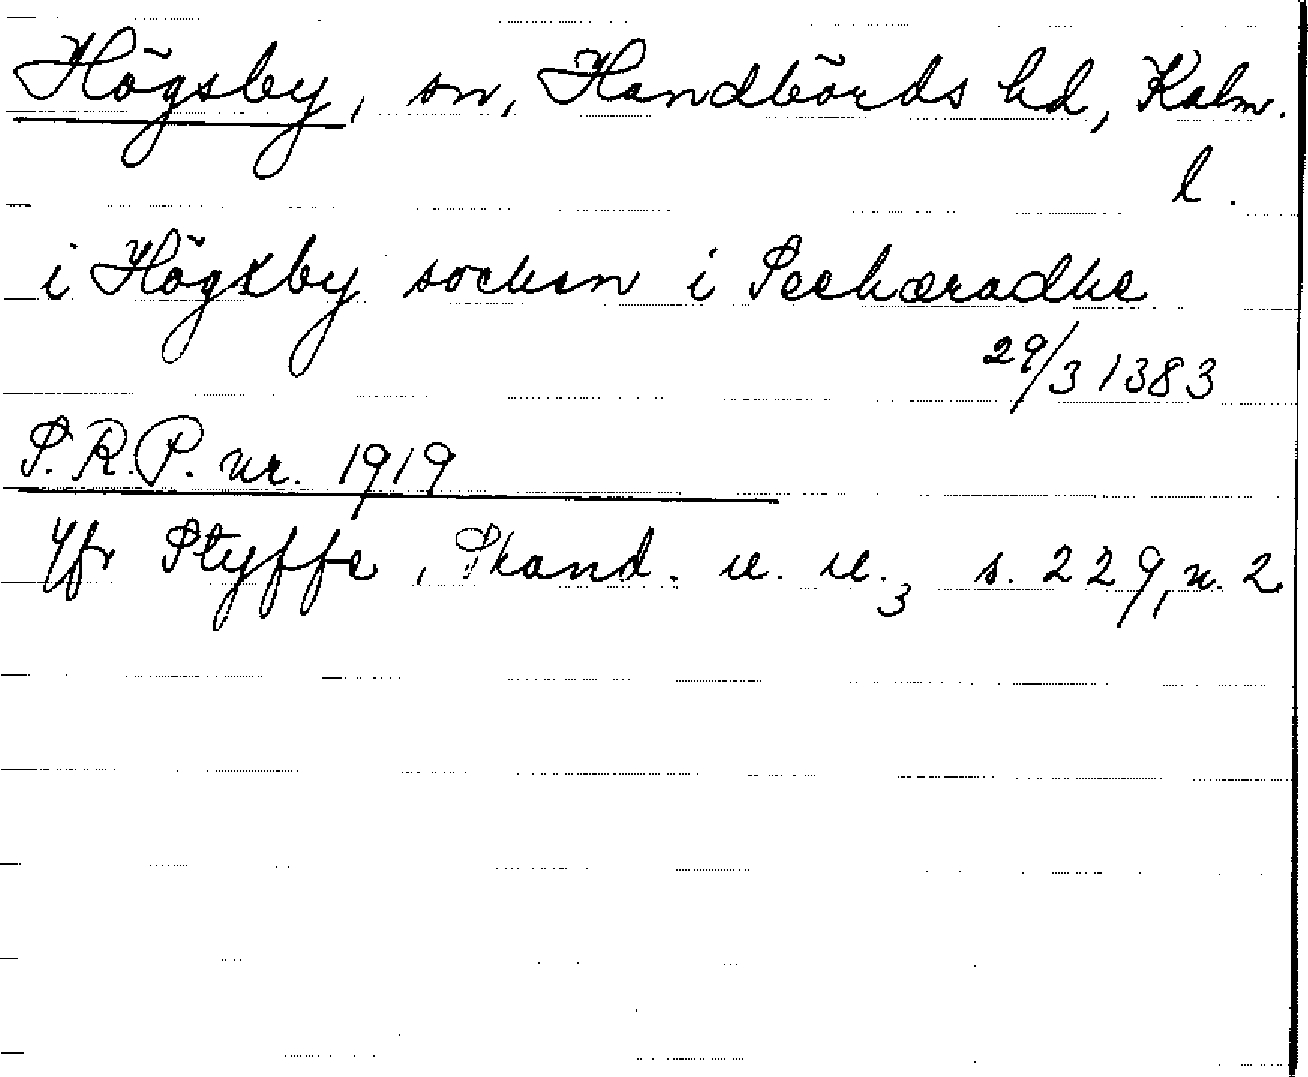 Högsby, sn, Handbörds hd, Kalm.
l.
i Högxby socken i Seehæradhe
29/3 1383
S.R.P. nr. 1919
Jfr Styffe, Skand. u. u.3 s. 229, n. 2